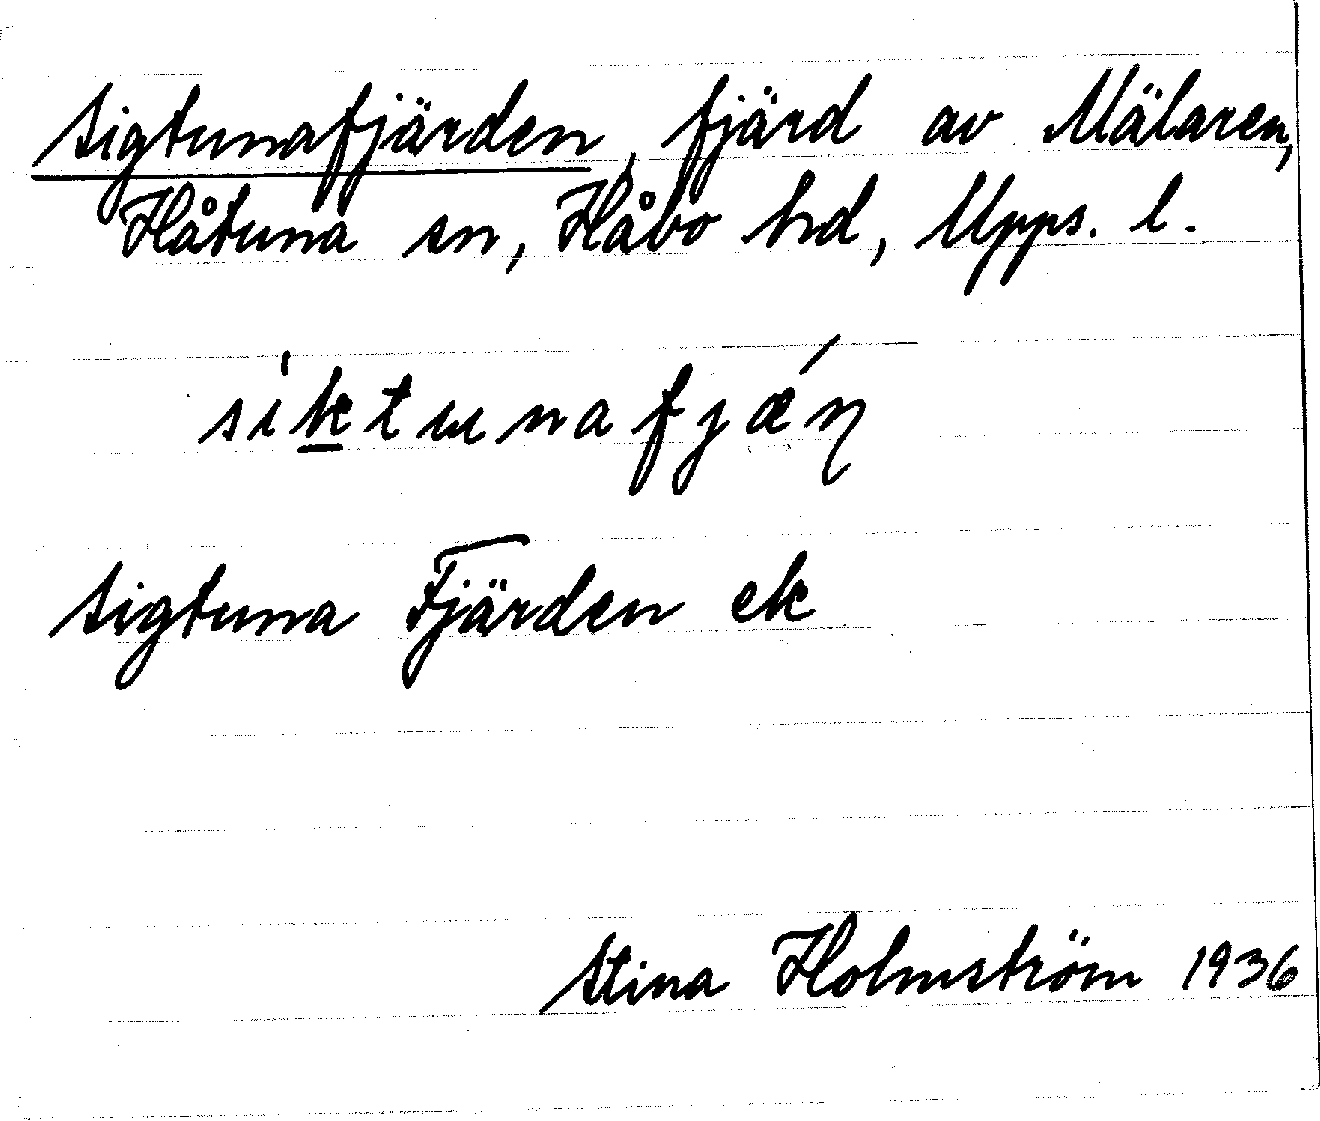 Sigtunafjärden, fjärd av Mälaren,
Håtuna sn, Håbo hd, Upps. l.
siktunafjæ´ɳ
Sigtuna Fjärden ek
Stina Holmström 1936